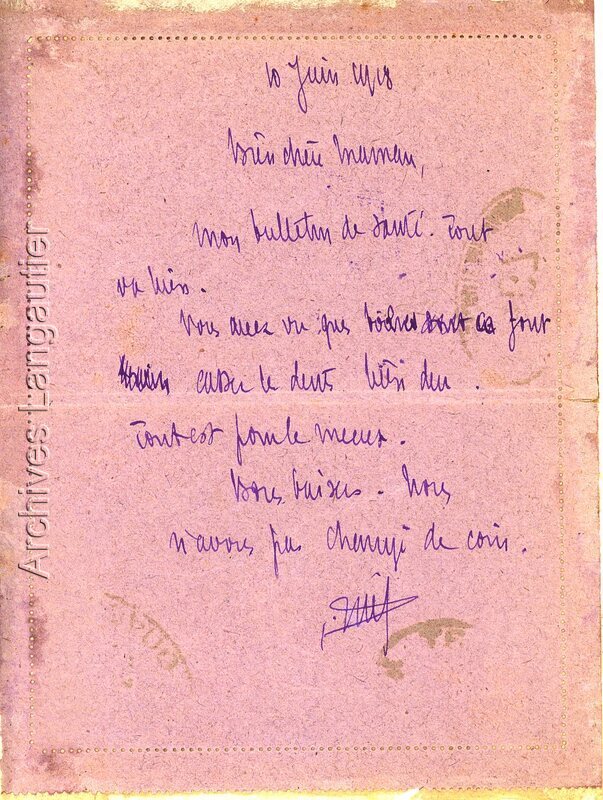 10 Juin 1918
Bien chère Maman,
Mon bulletin de santé. Tout
va bien.
Vous avez vu que boches font
casser les dents bien dur.
Tout est pour le mieux.
Bons baisers. Nous
n'avons pas changé de coin.
Archives Langautier